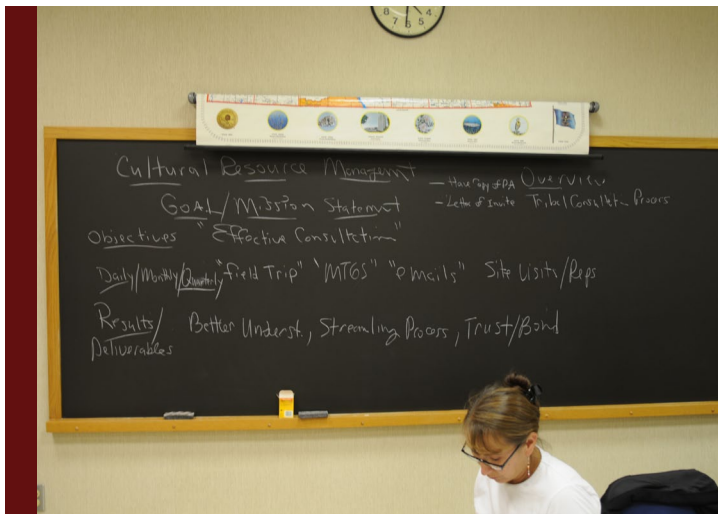 Cultural Resource Management
- Have Copy of PA Overview
- Letter of Invite Tribal Consultation Process
Goal/Mission Statement
Objectives "Effective Consultation"
Daily/Monthly/Quarterly "field Trip" "MTGS" "emails" Site Visits/Reps
Results/ Better Underst., Streamling Process, Trust/Bond
Deliverables